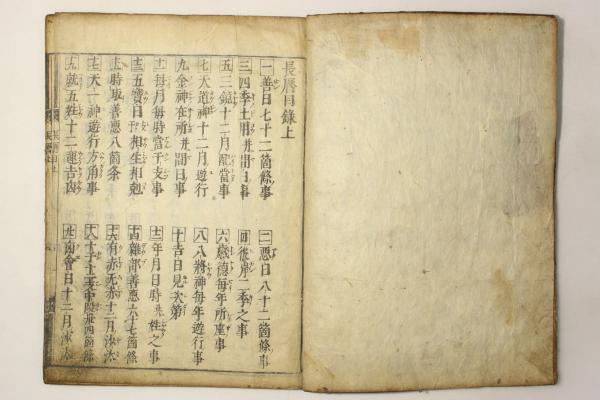 長暦目録上
一 善日七十二箇條事
二 悪日八十二箇條事
三 四季土用并間日事
四 彼岸二季之事
五 三鏡十二月配當事
六 歳徳毎年所座事
七 天道神十二月遊行
八 八將神毎年遊行事
九 金神在所并間日事
十 吉日見次第
十一 毎月毎時當干支事
十二 年月日時 姓之事
十三 五寳日 相生相剋
十四 雜部善悪六十七箇條
十五 時取善悪八箇条
十六 有亦无亦十二月
十七 天一神遊行方角事
十八 十干十二支 四箇條
十九 就五姓十二運吉凶
會日十二月